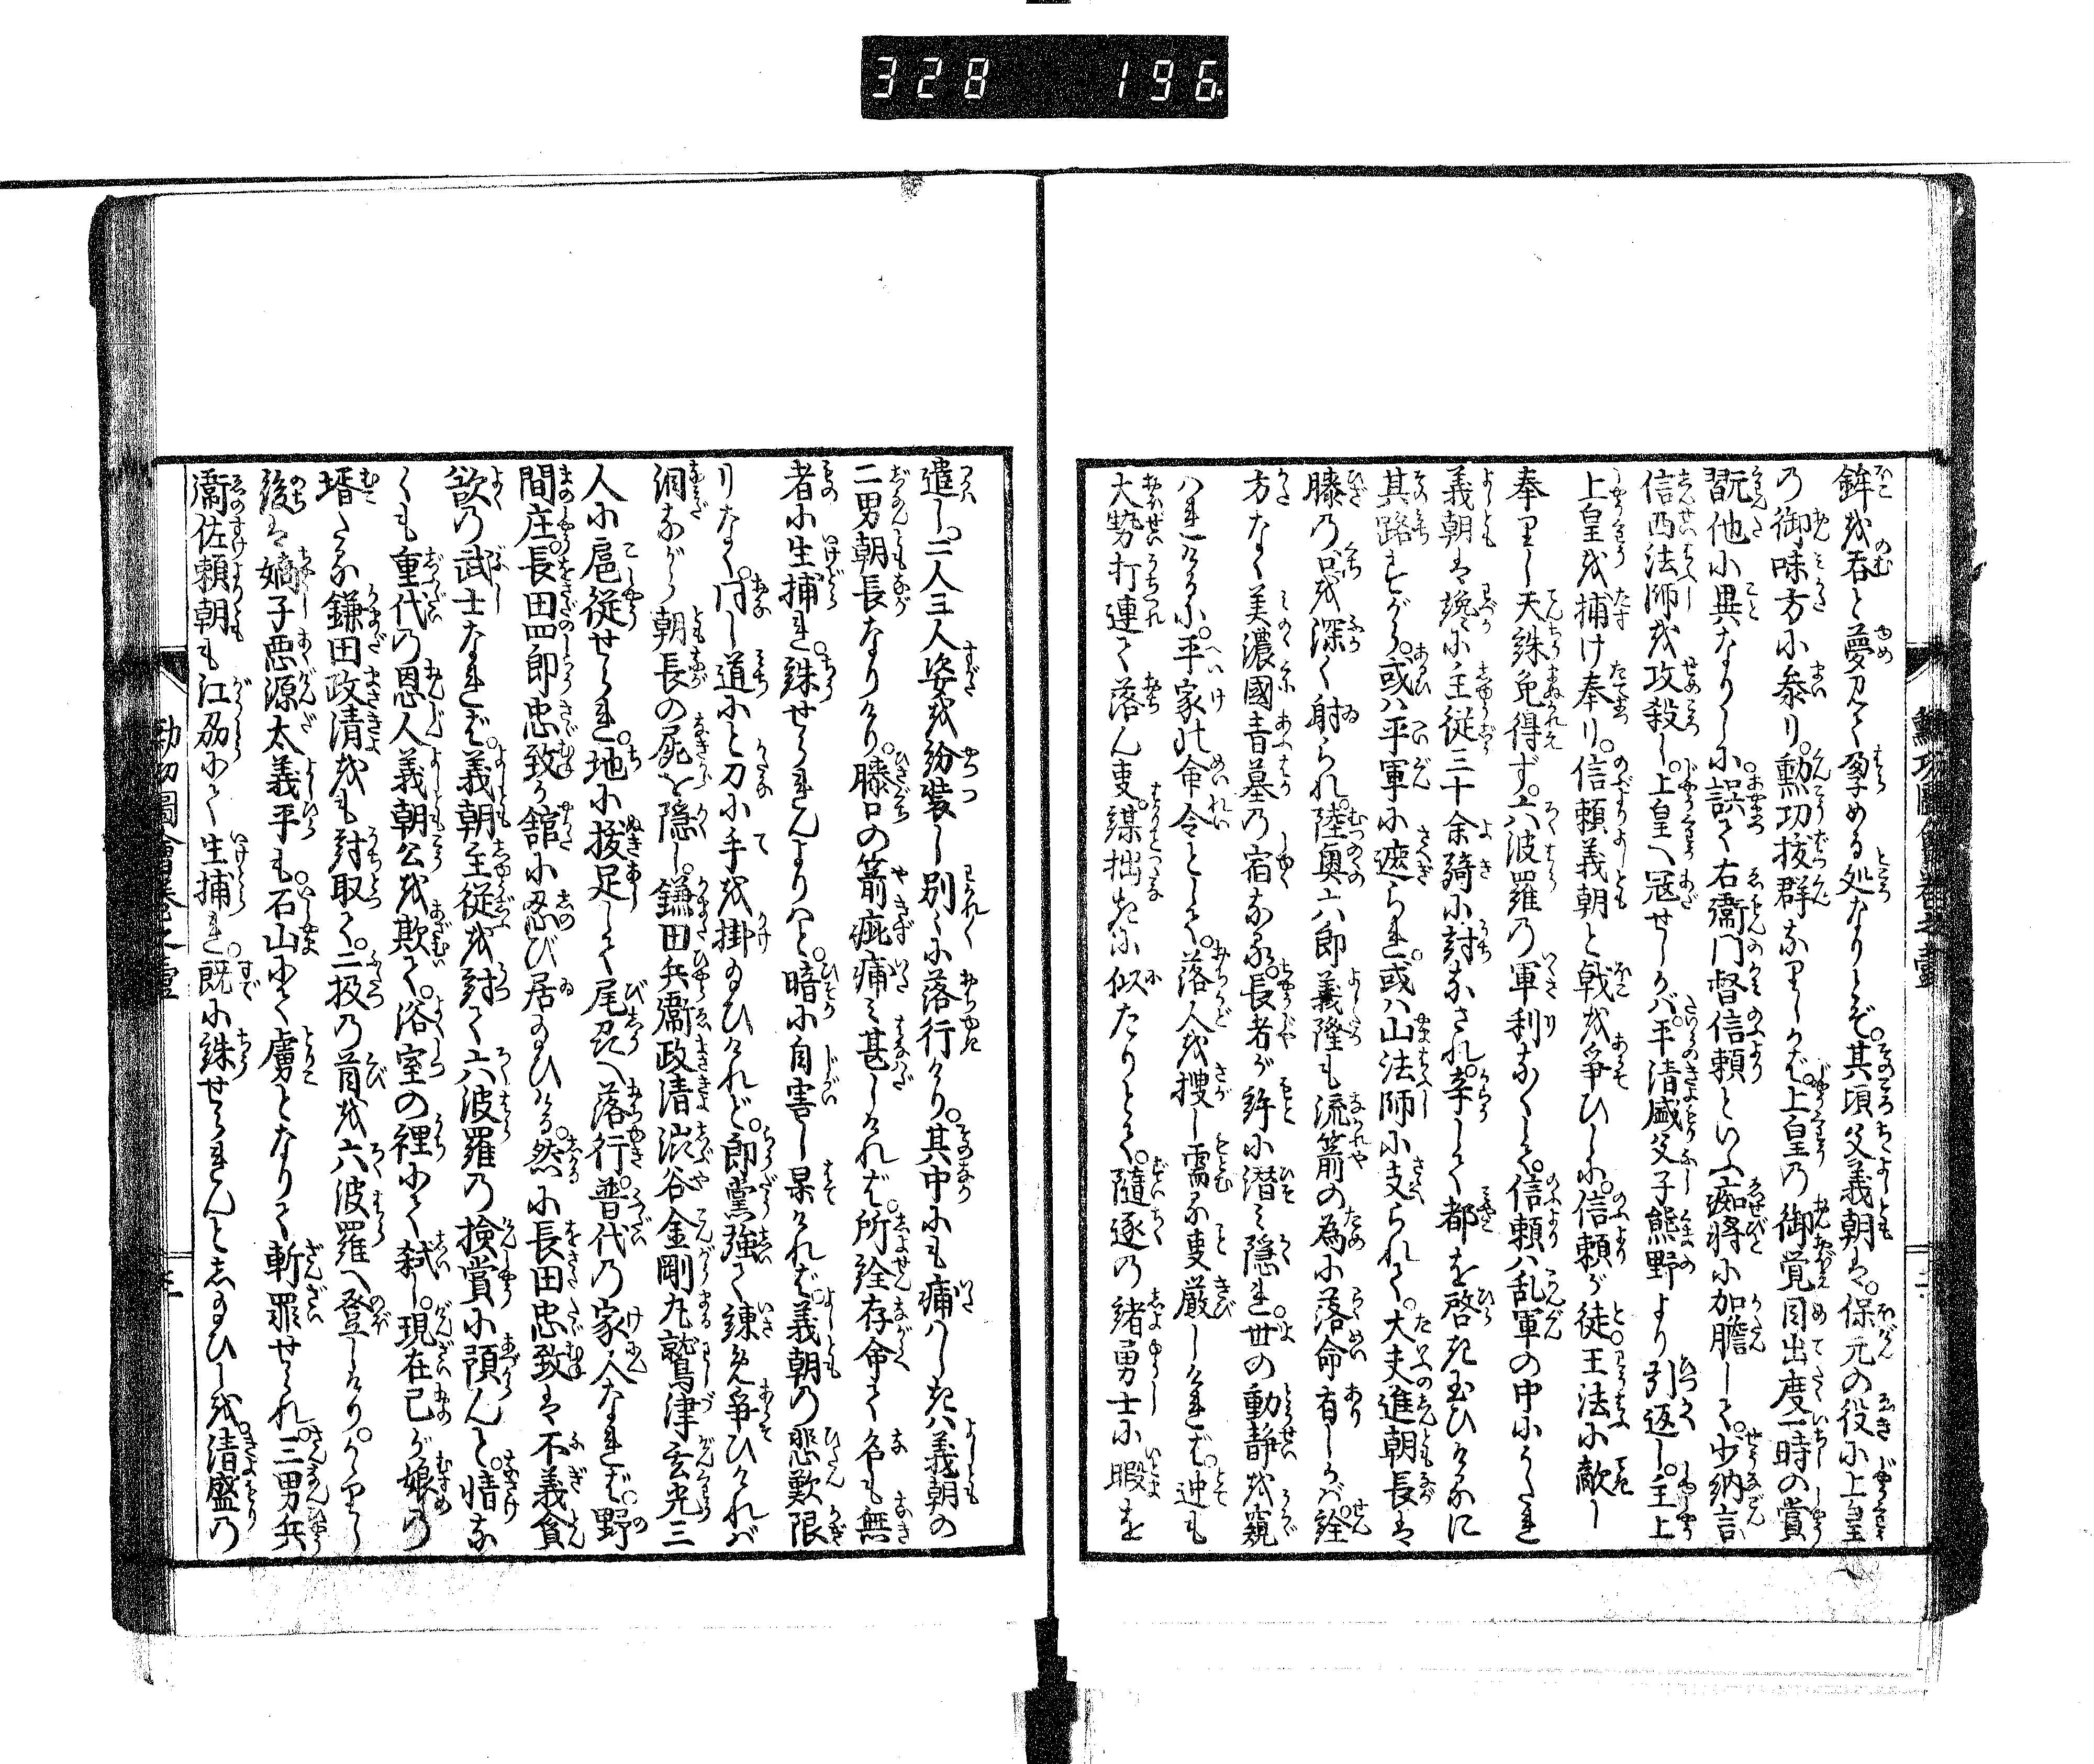 328 196
鉾を呑と夢見て孕める処なりとぞ。其頃父義朝は。保元の役に上皇
の御味方に参り。勲功抜群なりしかば。上皇の御覚目出度一時の賞
翫他に異なりしに。誤て右衛門督信頼といふ痴将に加膽して。少納言
信西法師を攻殺し。上皇へ冦せしかバ。平清盛父子熊野より引返し。主上
上皇を捕け奉り。信頼義朝と戟を争ひしに。信頼が徒と。王法に敵し
奉りし天誅免得ず。六波羅の軍利なくして。信頼ハ乱軍の中にうたれ
義朝は纔に主従三十余騎に討なされ。辛して都を啓き玉ひけるに
其路すがら。或ハ平軍に遮られ。或ハ山法師に支られて。大夫進朝長は
膝の口を深く射られ。陸奥六郎義隆も流箭の為に落命有しかバ。詮
方なく美濃國青墓の宿なる。長者が許に潜ミ隠れ。世の動静を窺
ハれけるに。平家の命令として。落人を捜し需る事厳しけれバ。迚も
大勢打連て落ん事。謀拙きに似たりとて。随逐の諸勇士に暇を
勲功圖會巻之壹
二
遣し。二人三人姿を紛装し別〻に落行けり。其中にも痛ハしきハ義朝の
二男朝長なりけり。膝口の箭疵痛ミ甚しけれバ。所詮存命て名も無
者に生捕れ。誅せられんよりハと。暗に自害し果けれバ。義朝の悲歎限
りなく。同じ道にと刀に手を掛玉ひけれど。郎黨強て諫め争ひければ
泪ながら朝長の屍を隠し。鎌田兵衛政清渋谷金剛丸鷲津玄光三
人に扈従せられ。地に抜足して尾張へ落行。普代の家人なれバ。野
間庄長田四郎忠致が舘に忍び居玉ひける。然に長田忠致は不義貪
欲の武士なれバ。義朝主従を討て六波羅の検賞に預んと。情な
くも重代の恩人義朝公を欺て。浴室の裡にて弑し。現在己が娘の
壻たる鎌田政清をも討取て。二級の首を六波羅へ登しけり。かゝりし
後は嫡子悪源太義平も。石山にて虜となりて斬罪せられ。三男兵
衛佐頼朝も江刕にて生捕れ。既に誅せられんとし玉ひしを。清盛の
勲功圖會巻之壹
三